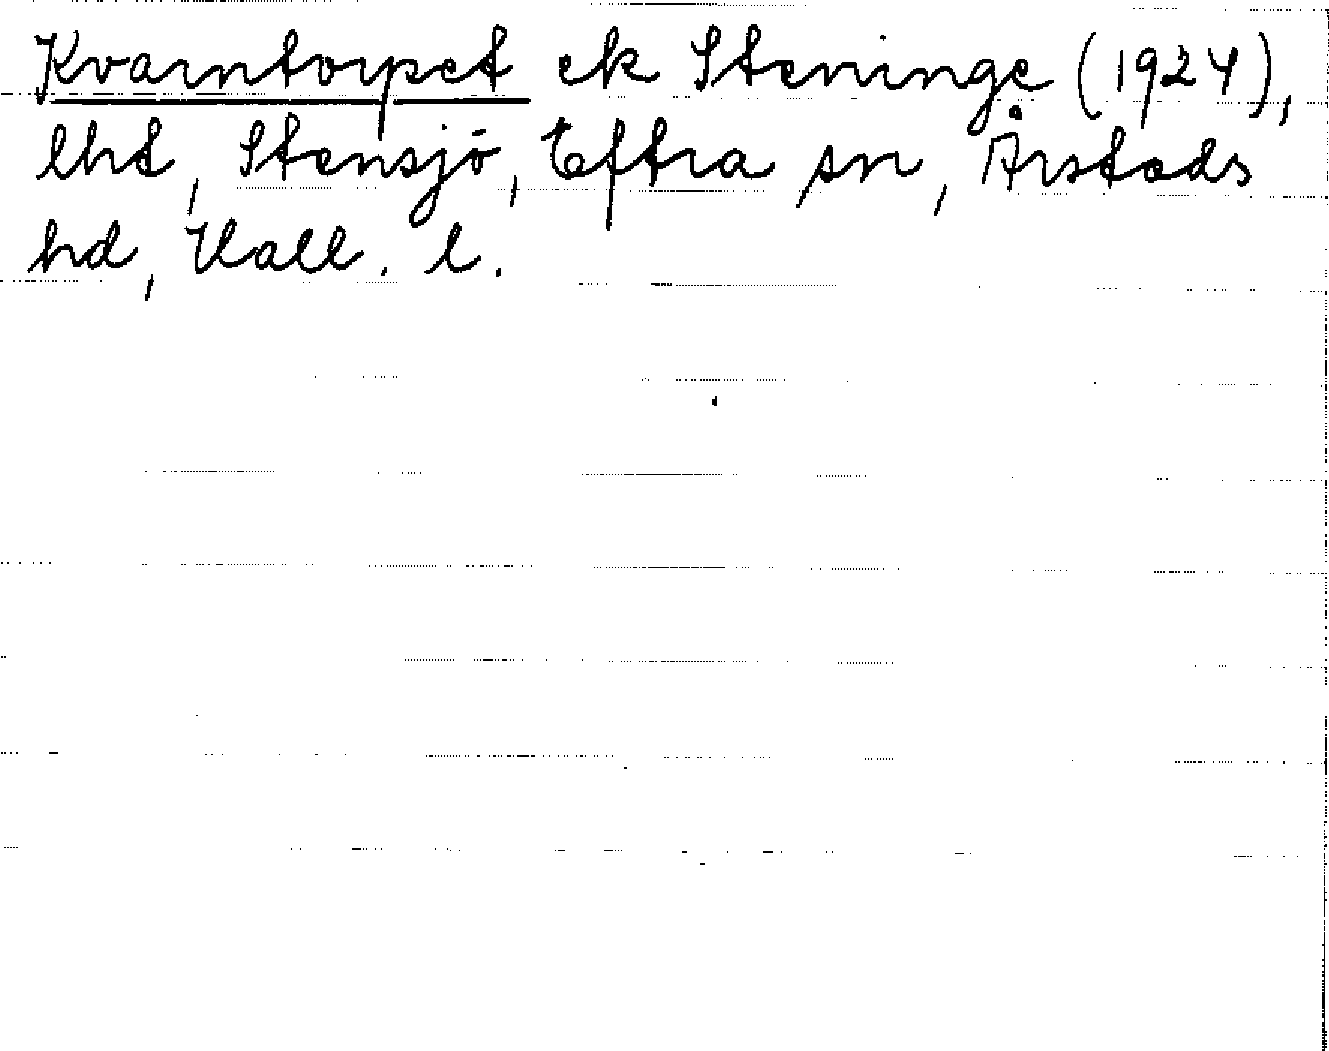 Kvarntorpet ek Steninge (1924),
lht, Stensjö, Eftra sn, Årstads
hd, Hall. l.